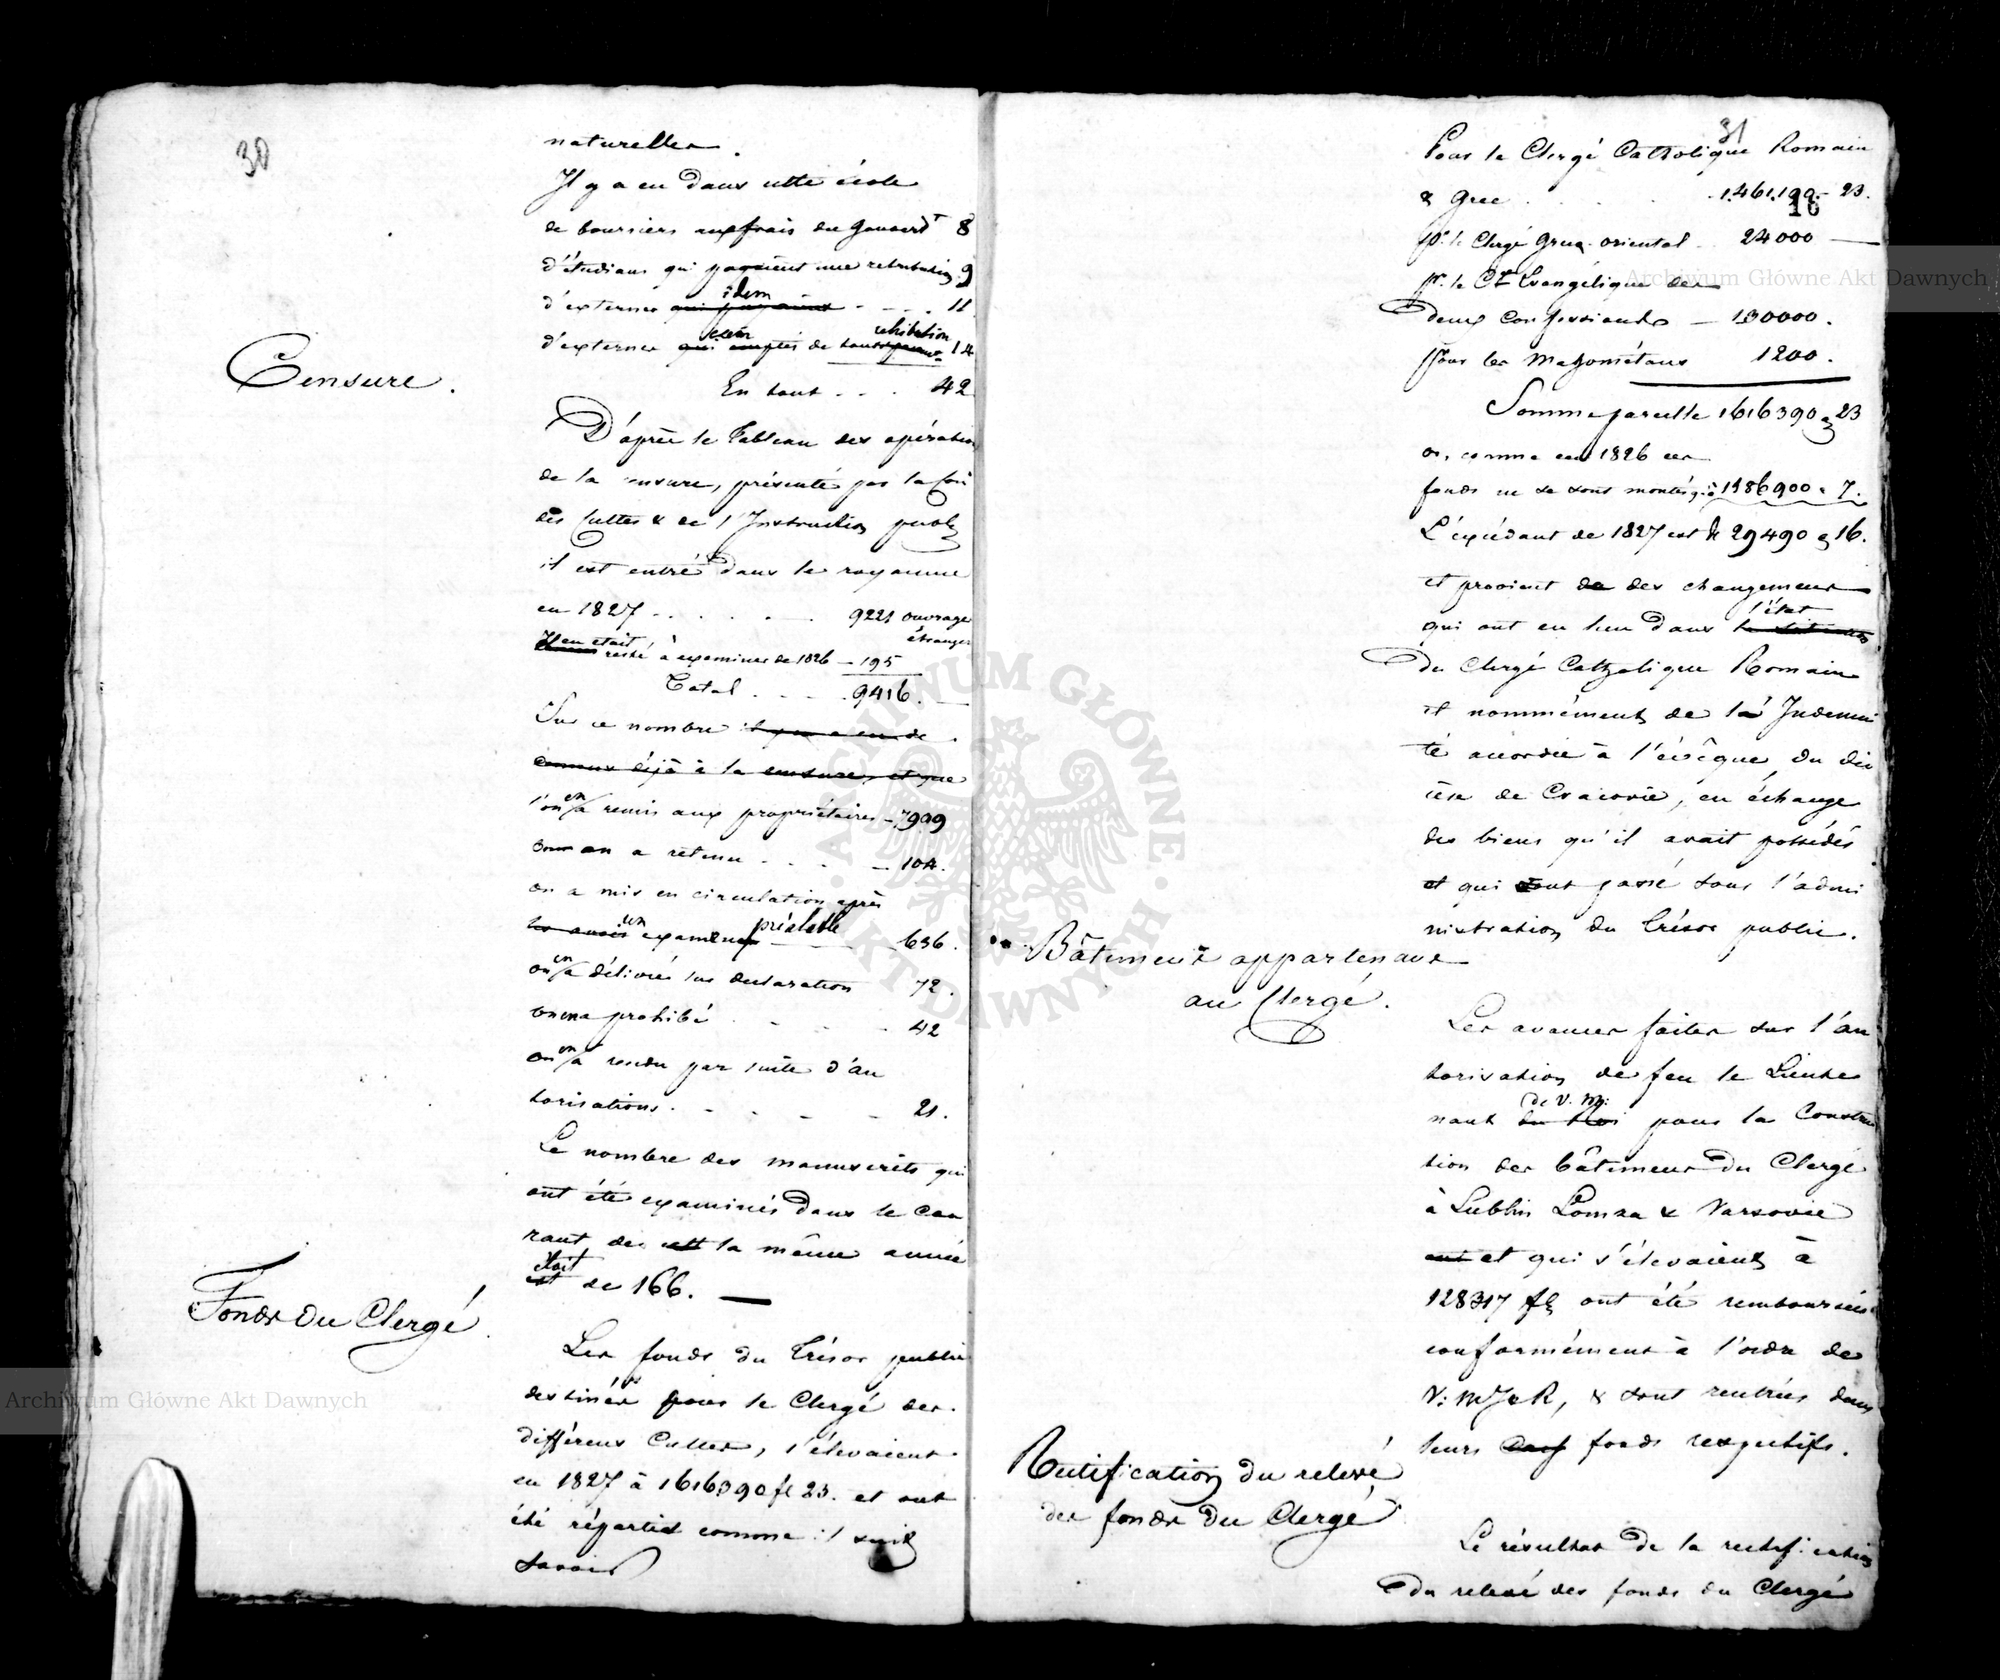 30
naturelles.
Il y a eu dans cette école
de boursiers aux frais du Gouvert 8
d'étudians qui payaient une retribution 9
d'externes qui payaient idem - - - . 11
d'externes qui exemptés de toute retribution 14
En tout - - . 42
Censure.
D'après le Tableau des opérations
de la censure, présenté par la Con
des Cultes & de l'Instruction publ
il est entré dans le royaume
en 1827 . . . . 9221 ouvrages
étrangers
Il en etait resté à examiner de 1826 — 195
Total . - - . 9416.
Sur ce nombre il y en a eu de
connus déjà à la censure, et que
l'on en a remis aux propriétaires - 7999
on en a retenu . . - — 104.
on a mis en circulation après
un examen préalable — 636.
on en a délivrés sur declaration 72.
on en a prohibé . - - - 42
on en a rendu par suite d'au
torisations. - - - - 21.
Le nombre des manuscrits qui
ont été examinés dans le cou
rant de cett la même année
est était de 166. —
Fonds du Clergé
Les fonds du Trésor public
destinés pour le Clergé des
différens Cultes, s'élevaient
en 1827 à 1616390 fl 23. et ont
été répartis comme il suit
savoir
31
Pour le Clergé Catholique Romain
& Grec . . . . . 1.461.190 - 23.
16
pr. le Clergé Grec-oriental - 24000 —
pr. le Cl. Evangélique des
deux Confessions — 130000.
Pour les Mahométans 1200.
Somme pareille 1616390 " 23
or, comme en 1826 ces
fonds ne se sont montés qu'à 1586900 " 7.
L'excédant de 1827 est de 29490 " 16.
et provient de des changemens
qui ont eu lieu dans l'état
du Clergé Catholique Romain
et nommément de la Indemni
té accordée à l'évêque du dio
cèse de Cracovie, en échange
des biens qu'il avait possédés
et qui sont passé sous l'admi
nistration du Trésor public.
Bâtimens appartenans
au Clergé.
Les avances faites sur l'au
torisation de feu le Lieute
nant du Roi de V. M. pour la Constru
tion des bâtimens du Clergé
à Lublin Lomza & Varsovie
ont et qui s'élevaient à
128317 fl ont été remboursées
conformément à l'ordre de
V: M I & R, & sont rentrées dans
leurs fonds respectifs.
Rectification du relevé
des fonds du Clergé
Le résultat de la rectification
du relevé des fonds du Clergé
Archiwum Główne Akt Dawnych
Archiwum Główne Akt Dawnych
ARCHIWUM GŁÓWNE AKT DAWNYCH